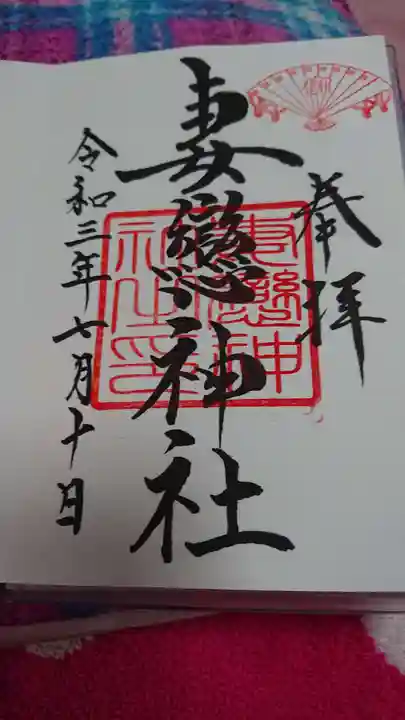 奉拝
妻戀神社
妻戀神社之印
令和三年七月十日